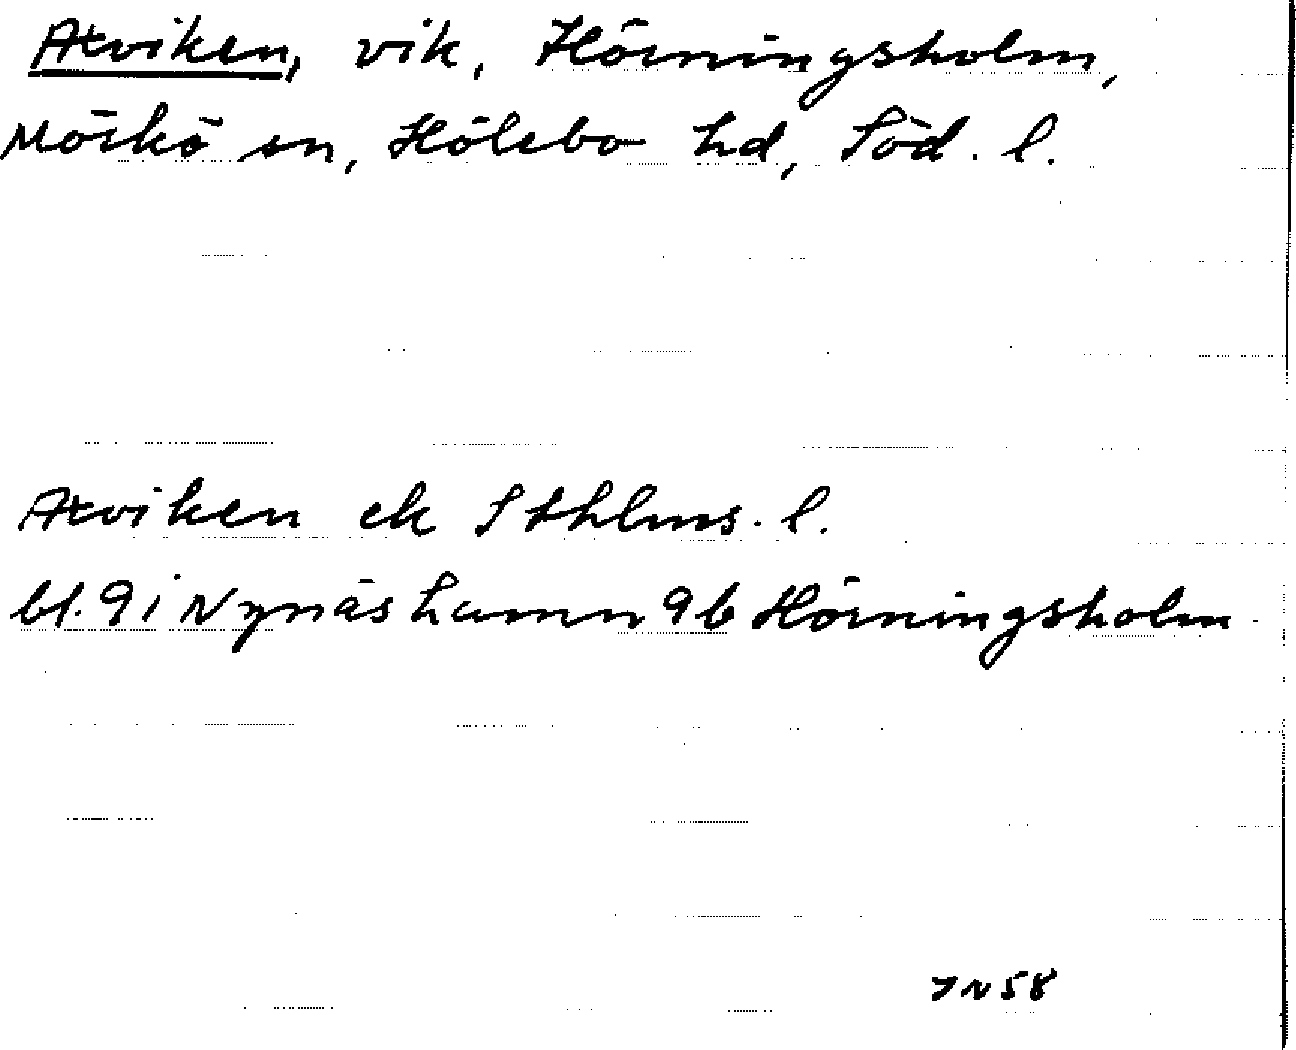 Axviken, vik, Hörningsholm,
Mörkö sn, Hölebo hd, Söd. l.
Axviken ek Sthlms. l.
bl. 9 i Nynäshamn 9b Hörningsholm
JN 58